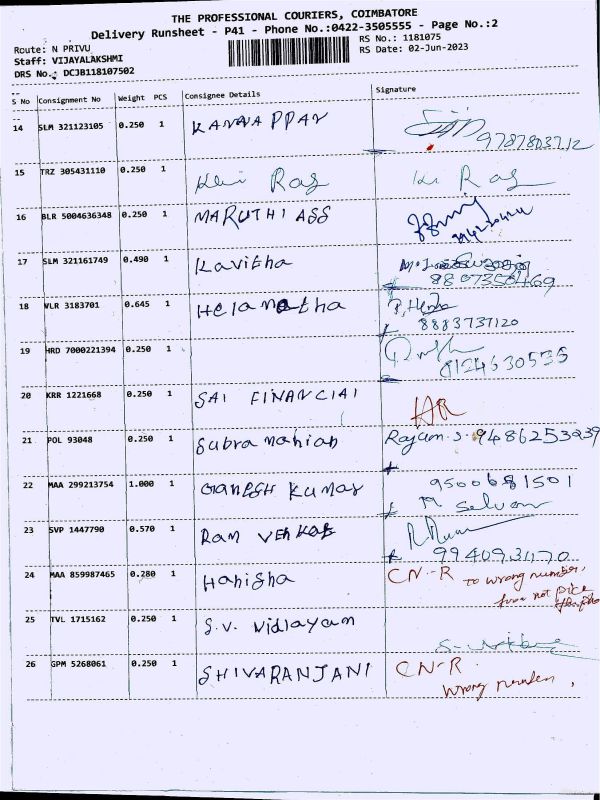 THE PROFESSIONAL COURIERS, COIMBATORE
Delivery Runsheet - P41 - Phone No.:0422-3505555 - Page No.:2
Route: N PRIVU
RS No.: 1181075
Staff: VIJAYALAKSHMI
RS Date: 02-Jun-2023
DRS No.: DCJB118107502
S No Consignment No Weight PCS Consignee Details Signature
14 SLM 321123105 0.250 1 KANNAPPAN
9787803712
15 TRZ 305431110 0.250 1 Raj Raj
16 BLR 5004636348 0.250 1 MARUTHI ASS
17 SLM 321161749 0.490 1 Kavitha
8807350469
18 VLR 3183701 0.645 1 Helamatha
8883737120
19 HRD 7000221394 0.250 1
8124630535
20 KRR 1221668 0.250 1 SAI FINANCIAL
21 POL 93048 0.250 1 Subramaniam Rajam.S. 9486253239
22 MAA 299213754 1.000 1 GANESH Kumar 9500681501
Selvam
23 SVP 1447790 0.570 1 RAM VENKAT
9940931170
24 MAA 859987465 0.280 1 Hanisha CN-R to wrong number,
not
25 TVL 1715162 0.250 1 S.V. Vidlayam
26 GPM 5268061 0.250 1 SHIVARANJANI CN-R.
wrong number,